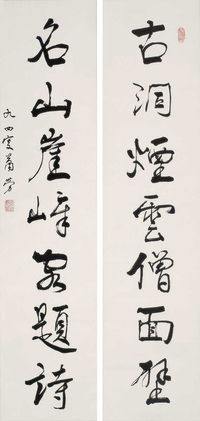 古洞煙雲僧面壁
名山崖嶂客題詩
九四叟蕭勞